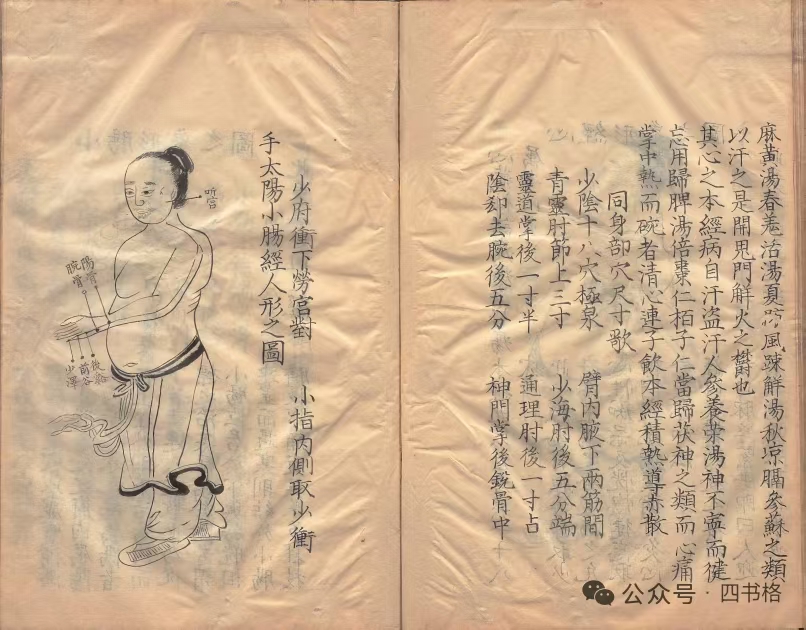 麻黄湯春羗活湯夏防風踈解湯秋凉膈參蘇之類
以汗之是開鬼門解火之欝也
其心之本經病自汗盗汗人參養荣湯神不寧而健
忘用歸脾湯倍棗仁栢子仁當歸茯神之類而心痛
掌中熱而碗者清心連子飲本經積熱導赤散
同身部穴尺寸歌
少陰十八穴極泉 臂内腋下两筋間
青靈肘節上三寸 少海肘後五分端
靈道掌後一寸半 通理肘後一寸占
陰却去腕後五分 神門掌後鋭骨中
少府衝下勞宫對 小指内側取少衝
手太陽小腸經人形之圖
聴宫
陽谷
腕骨
後谿
前谷
少澤
公众号·四书格